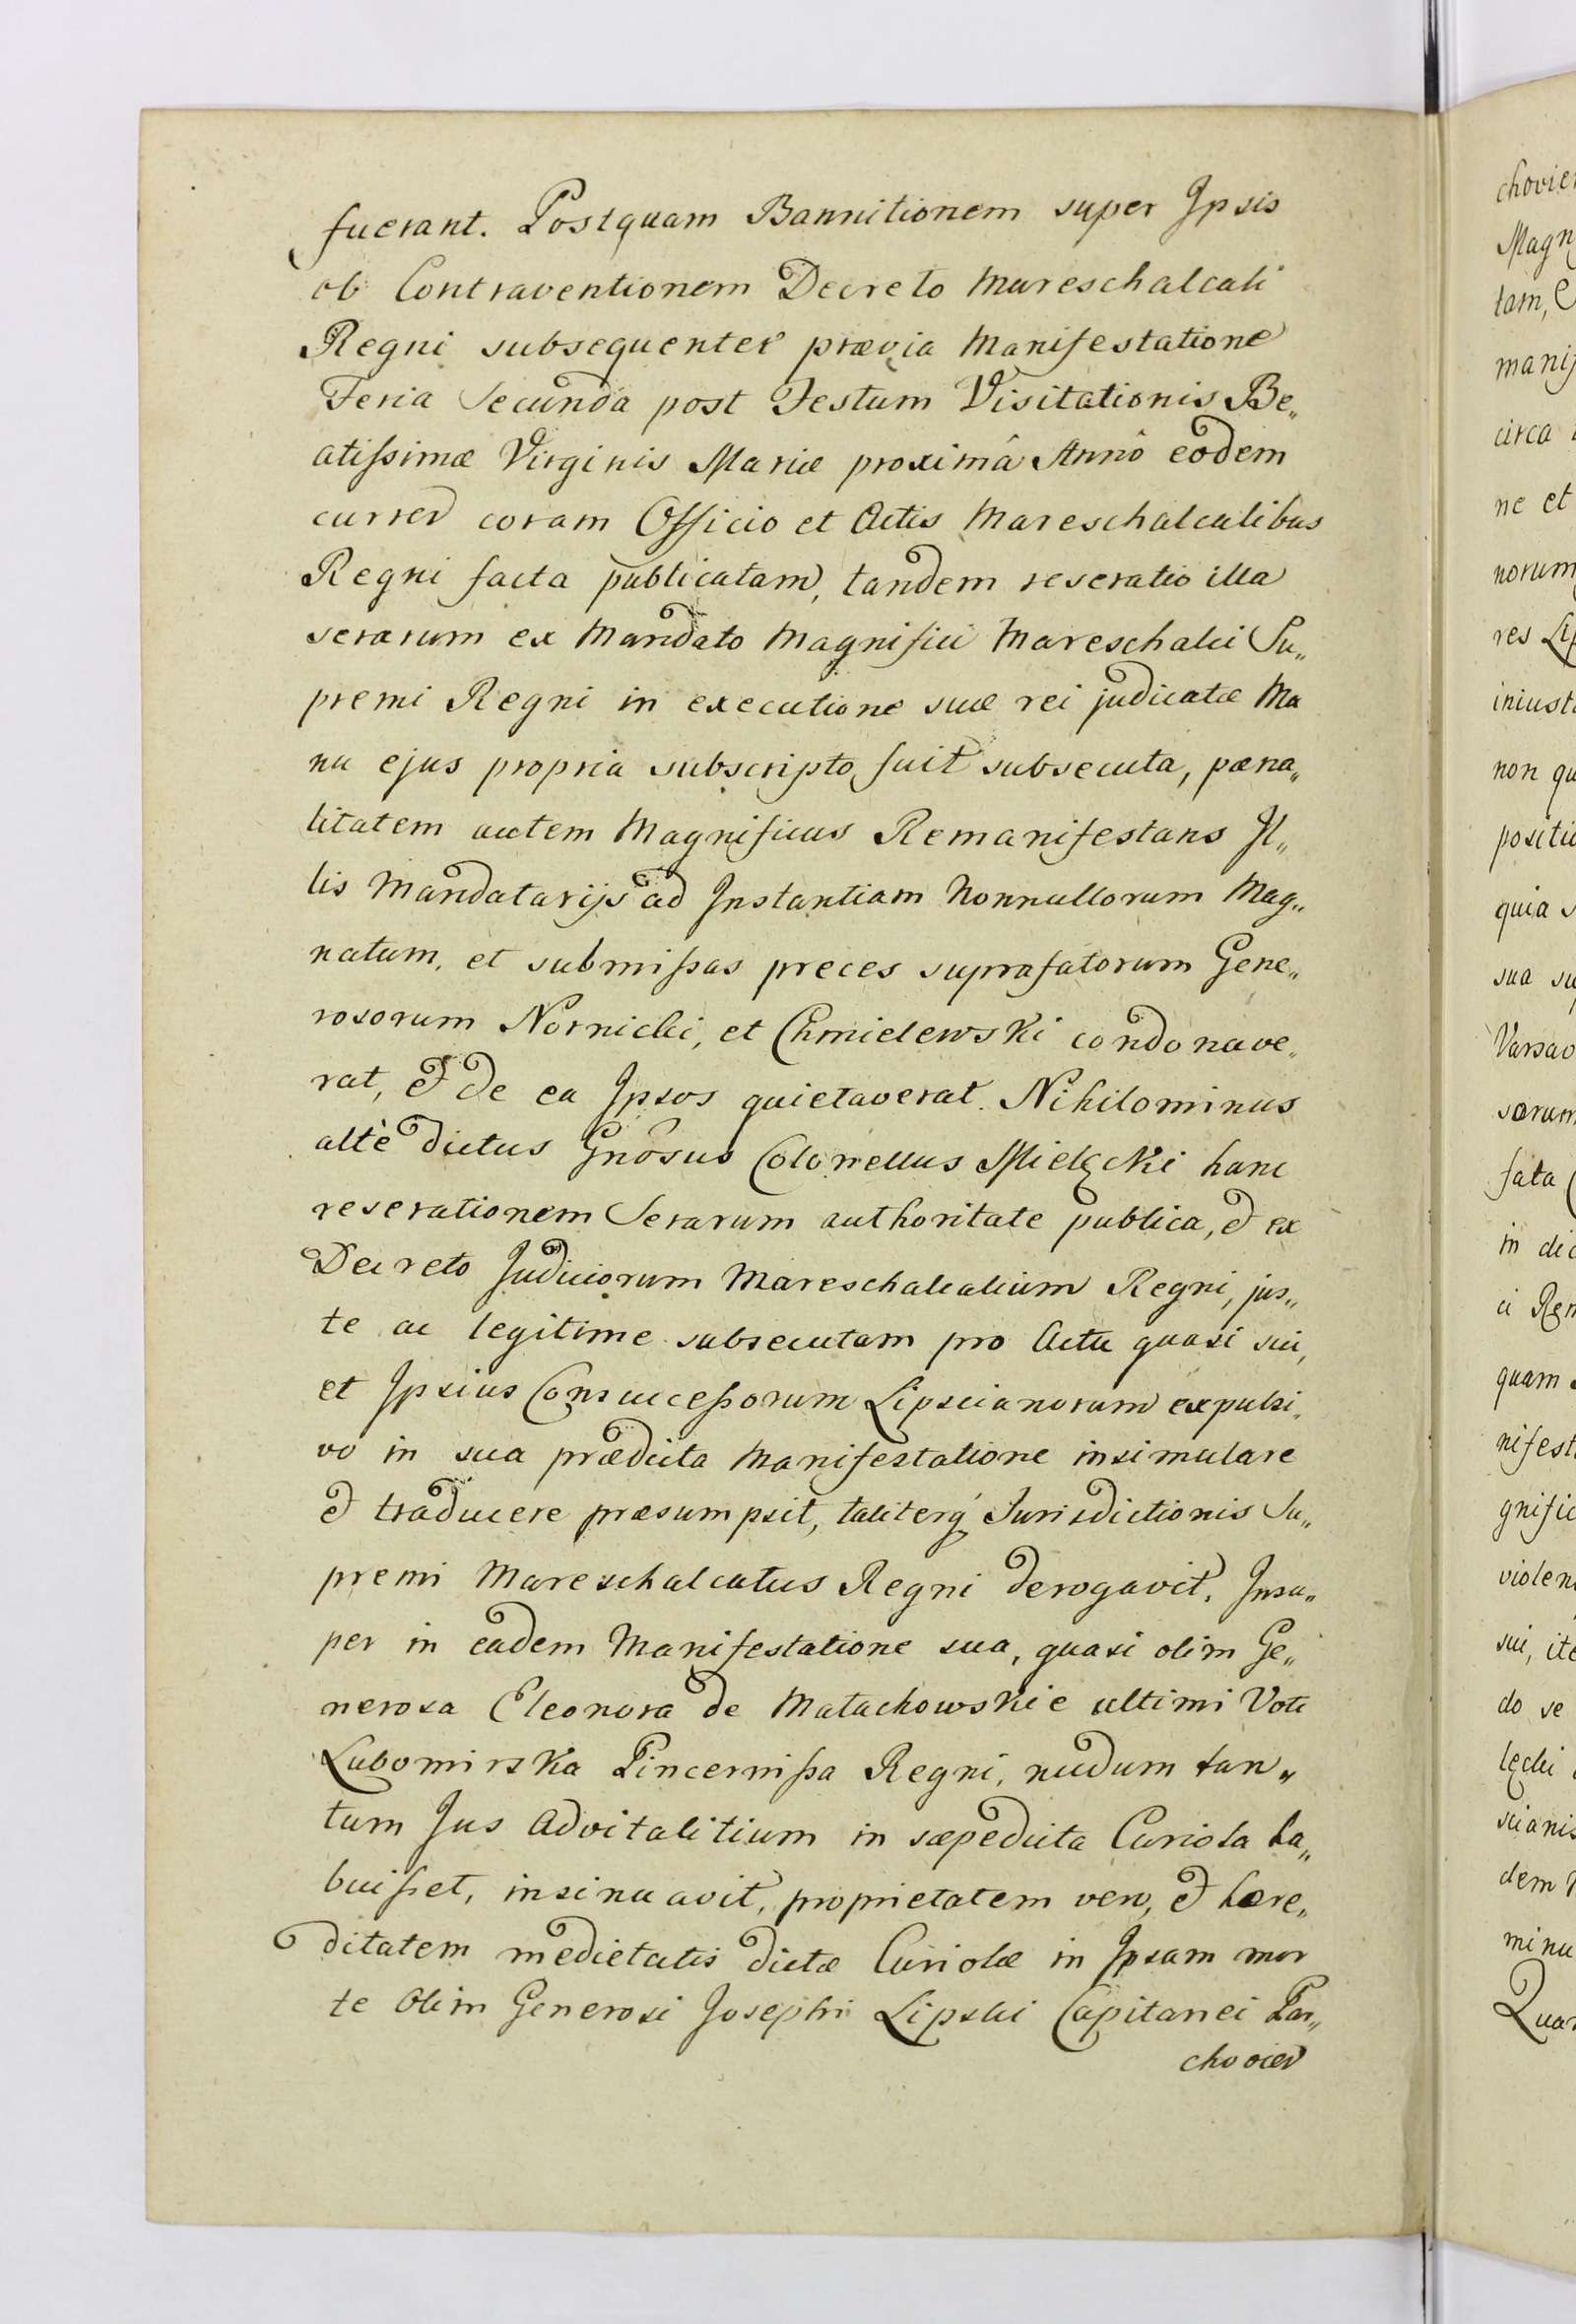 fuerant. Postquam Bannitionem super Ipsis
ob Contraventionem Decreto Mareschalcali
Regni subsequenter prævia Manifestatione
Feria Secunda post Festum Visitationis Be„
atißimæ Virginis Mariæ proximâ Annô eodem
curren coram Officio et Actis Mareschalcalibus
Regni facta publicatam, tandem reseratio illa
serarum ex Mandato Magnifici Mareschalci Su„
premi Regni in executione suæ rei judicatæ Ma
nu ejus propria subscripto fuit subsecuta, pæna„
litatem autem Magnificus Remanifestans Il„
lis Mandatarijs ad Instantiam Nonnullorum Mag„
natum, et submißas preces suprafatorum Gene„
rosorum Nornicki, et Chmielewski condonave„
rat, et de ea Ipsos quietaverat. Nihilominus
altè dictus Gnôsus Colonellus Mielęcki hanc
reserationem Serarum authoritate publica, et ex
Decreto Judiciorum Mareschalcalium Regni, jus„
te ac legitime subsecutam pro Actu quasi sui,
et Ipsius Consuceßorum Lipscianorum expulsi„
vo in sua prædicta Manifestatione insimulare
et traducere præsumpsit, taliterq́ Jurisdictionis Su„
premi Mareschalcatus Regni derogavit. Insu„
per in eadem Manifestatione sua, quasi olim Ge„
nerosa Eleonora de Matachowskie ultimi Voti
Lubomirska Pincernißa Regni, nudum tan„
tum Jus Advitalitium in sæpedicta Curiola ha„
buißet, insinuavit, proprietatem vero, et hære„
ditatem medietatis dictæ Curiolæ in Ipsam mor
te Olim Generosi Josephi Lipski Capitanei Par„
chovien
chovien
Magn
tam,
manif
circa
ne et
norum
res Lip
iniust
non qu
positio
quia s
sua su
Varsav
sarum
fata
in dic
ci Rem
quam
nifest
gnific
violen
sui, ite
do se
lęcki
scianis
dem
minu
Quar